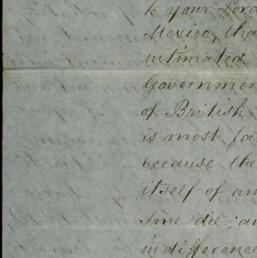 to your Lord
Mexico, tha
intimated
Governmen
of British
is most fa
because the
itself of an
sine die; an
indifference